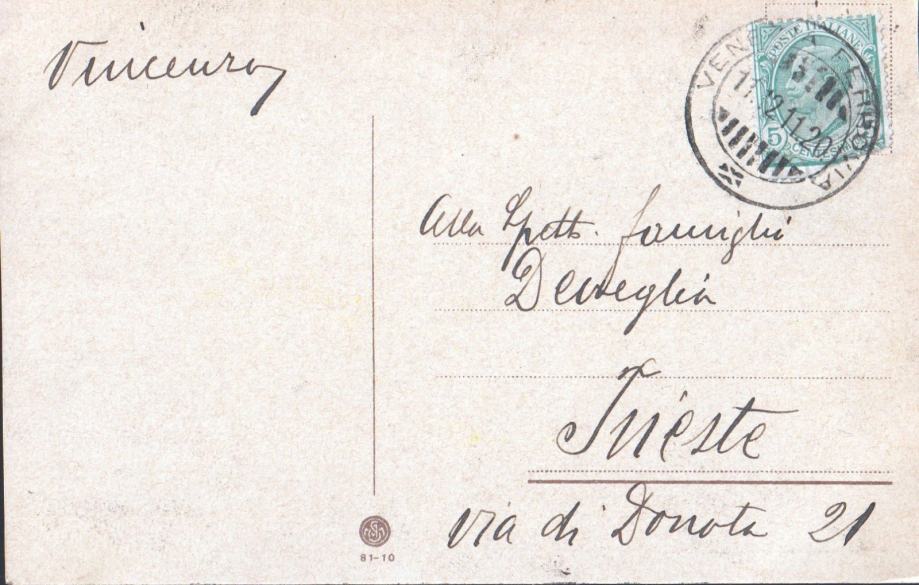 Vincenzo
POSTE ITALIANE
VENEZIA FERROVIA
17.12 11.20
5 CENTESIMI
Alla Spett. famiglia
Deveglia
Trieste
via di Donota 21
81-10